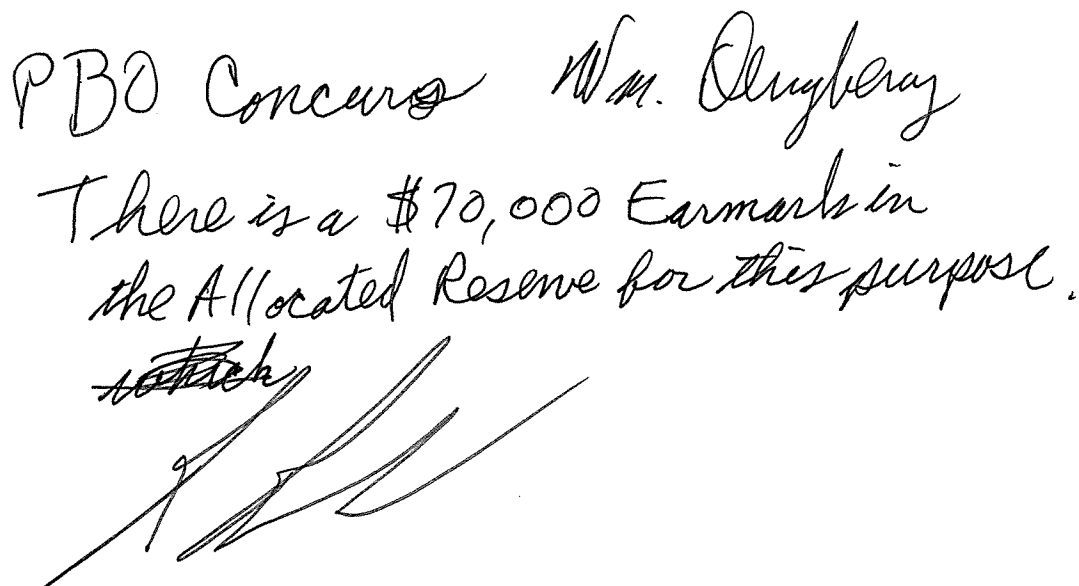 PBO Concurs Wm.
There is a $70,000 Earmark in
the Allocated Reserve for this purpose.